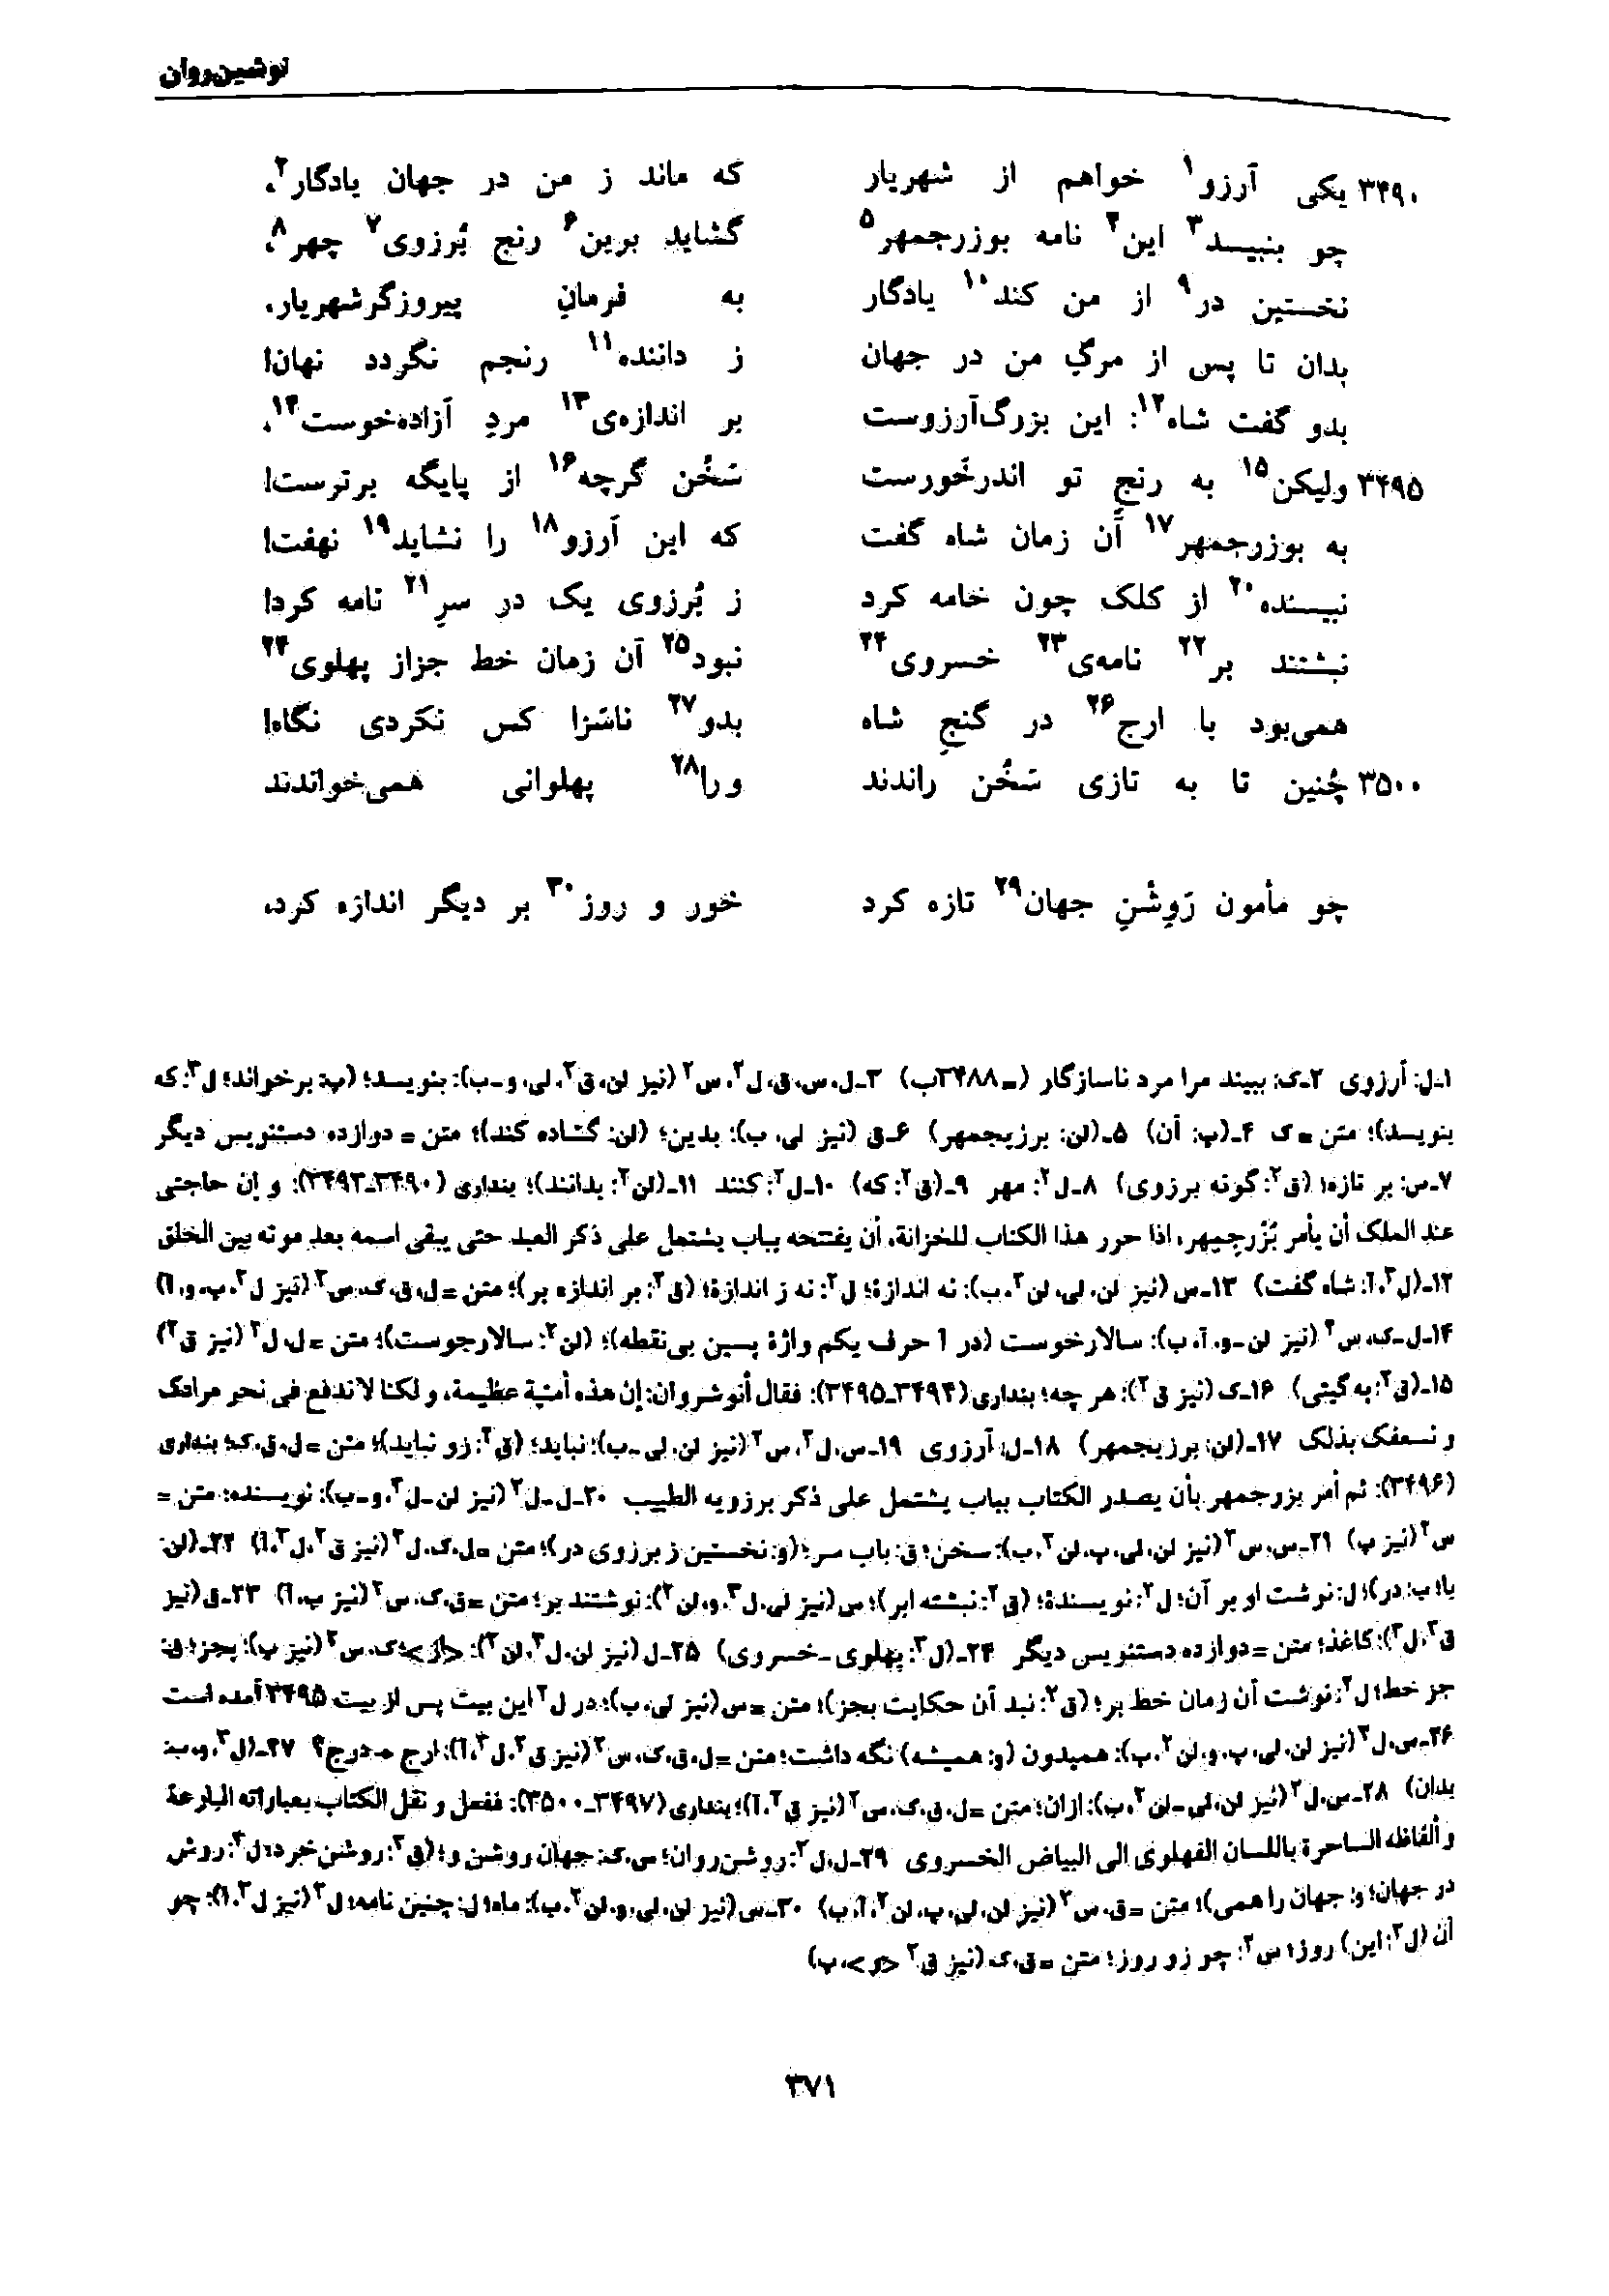 نوشین‌روان
۳۴۹۰ یکی آرزو۱ خواهم از شهریار که ماند ز من در جهان یادگار۲،
چو بنبیسد۳ این۴ نامه بوزرجمهر۵ گشاید برین۶ رنج بُرزوی۷ چهر۸،
نخستین در۹ از من کند۱۰ یادگار به فرمانِ پیروزگرشهریار،
بدان تا پس از مرگِ من در جهان ز داننده۱۱ رنجم نگردد نهان!
بدو گفت شاه۱۲: این بزرگ‌آرزوست بر اندازه‌ی۱۳ مردِ آزاده‌خوست۱۴،
۳۴۹۵ ولیکن۱۵ به رنجِ تو اندرخَورست سَخُن گرچه۱۶ از پایگه برترست!
به بوزرجمهر۱۷ آن زمان شاه گفت که این آرزو۱۸ را نشاید۱۹ نهفت!
نبیسنده۲۰ از کلک چون خامه کرد ز بُرزوی یک در سرِ۲۱ نامه کرد!
نبشتند بر۲۲ نامه‌ی۲۳ خسروی۲۴ نبود۲۵ آن زمان خط جزاز پهلوی۲۴
همی‌بود با ارج۲۶ در گنجِ شاه بدو۲۷ ناسَزا کس نکردی نگاه!
۳۵۰۰ چُنین تا به تازی سَخُن راندند ورا۲۸ پهلوانی همی‌خواندند
چو مأمون رَوِشنِ جهان۲۹ تازه کرد خور و روز۳۰ بر دیگر اندازه کرد،
۱ـ ل: آرزوی ۲ـ ک: ببیند مرا مرد ناسازگار (= ۳۴۸۸ب) ۳ـ ل، س، ق، ل۲، س۲ (نیز لن، ق۲، لی، و ـ ب): بنویسد؛ (پ: برخواند؛ ل۳: که
بنویسد)؛ متن = ک ۴ـ (پ: آن) ۵ـ (لن: برزیجمهر) ۶ـ ق (نیز لی، ب): بدین؛ (لن: گشاده کند)؛ متن = دوازده دستنویس دیگر
۷ـ س: بر تازه؛ (ق۲: گونه برزوی) ۸ـ ل۲: مهر ۹ـ (ق۲: که) ۱۰ـ ل۲: کنند ۱۱ـ (لن۲: بدانند)؛ بنداری (۳۴۹۰ـ۳۴۹۳): و إن حاجتی
عند الملک أن یأمر بُزُرجمهر، اذا حرر هذا الکتاب للخزانة، أن یفتتحه بباب یشتمل علی ذکر العبد حتی یبقی اسمه بعد موته بین الخلق
۱۲ـ (ل۳، آ: شاه گفت) ۱۳ـ س (نیز لن، لی، لن۲، ب): نه اندازهٔ؛ ل۲: نه ز اندازهٔ؛ (ق۲: بر اندازه بر)؛ متن = ل، ق، ک، س۲ (نیز ل۳، پ، و، آ)
۱۴ـ ل ـ ک، س۲ (نیز لن ـ و، آ، ب): سالارخوست (در آ حرف یکم واژهٔ پسین بی‌نقطه)؛ (لن۲: سالارجوست)؛ متن = ل، ل۲ (نیز ق۲)
۱۵ـ (ق۲: به گیتی) ۱۶ـ ک (نیز ق۲): هر چه؛ بنداری (۳۴۹۴ـ۳۴۹۵): فقال أنوشروان: إن هذه أمنیة عظیمة، و لکنا لا ندفع فی نحر مرادک
و نسعفک بذلک ۱۷ـ (لن: برزیجمهر) ۱۸ـ ل: آرزوی ۱۹ـ س، ل۲، س۲ (نیز لن، لی ـ ب): نباید؛ (ق۲: زو نباید)؛ متن = ل، ق، ک؛ بنداری
(۳۴۹۶): ثم أمر بزرجمهر بأن یصدر الکتاب بباب یشتمل علی ذکر برزویه الطبیب ۲۰ـ ل ـ ل۲ (نیز لن ـ ل۳، و ـ ب): نویسنده؛ متن =
س۲ (نیز پ) ۲۱ـ س، س۲ (نیز لن، لی، پ، لن۲، ب): سخن؛ ق: باب سر؛ (و: نخستین ز برزوی در)؛ متن = ل، ک، ل۲ (نیز ق۲، ل۳، آ) ۲۲ـ (لن:
یا؛ ب: در)؛ ل: نوشت او بر آن؛ ل۲: نویسندهٔ؛ (ق۲: نبشته ابر)؛ س (نیز لی، ل۳، و، لن۲): نوشتند بر؛ متن = ق، ک، س۲ (نیز پ، آ) ۲۳ـ ق (نیز
ق۲، ل۳): کاغذ؛ متن = دوازده دستنویس دیگر ۲۴ـ (ل۳: پهلوی ـ خسروی) ۲۵ـ ل (نیز لن، ل۳، لن۲): <از>؛ ک، س۲ (نیز پ): بجز؛ ق:
جز خط؛ ل۲: نوشت آن زمان خط بر؛ (ق۲: نبد آن حکایت بجز)؛ متن = س (نیز لی، ب)؛ در ل۲ این بیت پس از بیت ۳۴۹۵ آمده است
۲۶ـ س، ل۲ (نیز لن، لی، پ، و، لن۲، ب): همیدون (و: همیشه) نگه داشت؛ متن = ل، ق، ک، س۲ (نیز ق۲، ل۳، آ): ارج → درج؟ ۲۷ـ (ل۳، و، ب:
بدان) ۲۸ـ س، ل۲ (نیز لن، لی ـ لن۲، ب): ازان؛ متن = ل، ق، ک، س۲ (نیز ق۲، آ)؛ بنداری (۳۴۹۷ـ۳۵۰۰): ففعل و نقل الکتاب بعباراته البارعة
و ألفاظه الساحرة باللسان الفهلوی الی البیاض الخسروی ۲۹ـ ل، ل۲: روشن‌روان؛ س، ک: جهان روشن و؛ (ق۲: روشن خرد؛ ل۳: روش
در جهان؛ و: جهان را همی)؛ متن = ق، س۲ (نیز لن، لی، پ، لن۲، آ، ب) ۳۰ـ س (نیز لن، لی، و، لن۲، ب): ماه؛ ل: چنین نامه؛ ل۲ (نیز ل۳، آ): چو
آن (ل۳: این) روز؛ س۲: چو زو روز؛ متن = ق، ک (نیز ق۲ <و>، پ)
۳۷۱